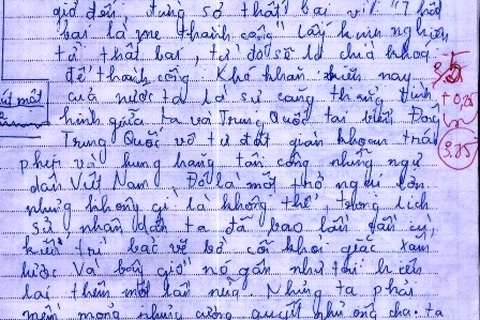 giờ đến, đừng sợ thất bại vì "Thất
bại là mẹ thành công" lấy kinh nghiệm
từ thất bại, từ đó sẽ là chìa khoá
để thành công. Khó khăn hiện nay
của nước ta là sự căng thẳng tình
hình giữa ta và Trung Quốc tại biển Đông
Trung Quốc vô tư đặt giàn khoan trái
phép và hung hăng tấn công những ngư
dân Việt Nam, Đó là một trở ngại lớn
nhưng không gì là không thể, trong lịch
sử nhân dân ta đã bao lần
bảo vệ bờ cõi khỏi giặc xâm
lược và bây giờ nó gần như tái hiện
lại thêm một lần nữa. Nhưng ta phải
mềm mỏng nhưng cương quyết như ông cha ta
+ 0,25
3,25